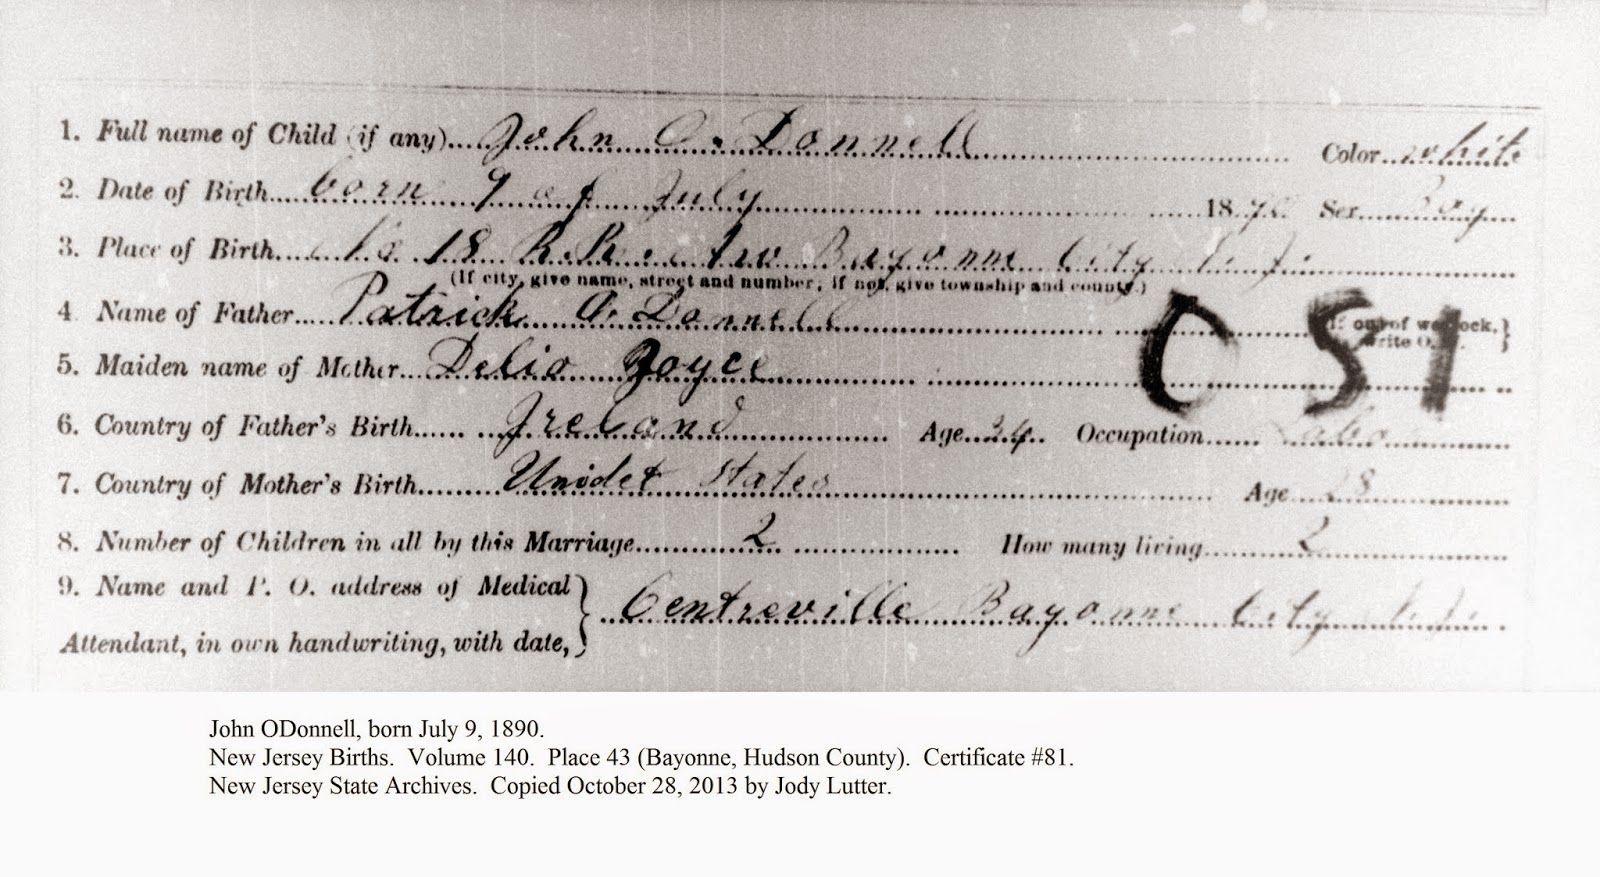 1. Full name of Child (if any) John O. Donnell Color white
2. Date of Birth born 9 of July 1890 Sex Boy
3. Place of Birth No 18 R.R. Bayonne City N.J.
(If city, give name, street and number, if not, give township and county.)
4 Name of Father Patrick O. Donnell (If out of wedlock, write O. W.)
5. Maiden name of Mother Delia Joyce
O 51
6. Country of Father's Birth Ireland Age 34 Occupation Labor
7. Country of Mother's Birth Unidet States Age 28
8. Number of Children in all by this Marriage 2 How many living 2
9. Name and P. O. address of Medical
Centreville Bayonne City N.J.
Attendant, in own handwriting, with date,
John ODonnell, born July 9, 1890.
New Jersey Births. Volume 140. Place 43 (Bayonne, Hudson County). Certificate #81.
New Jersey State Archives. Copied October 28, 2013 by Jody Lutter.